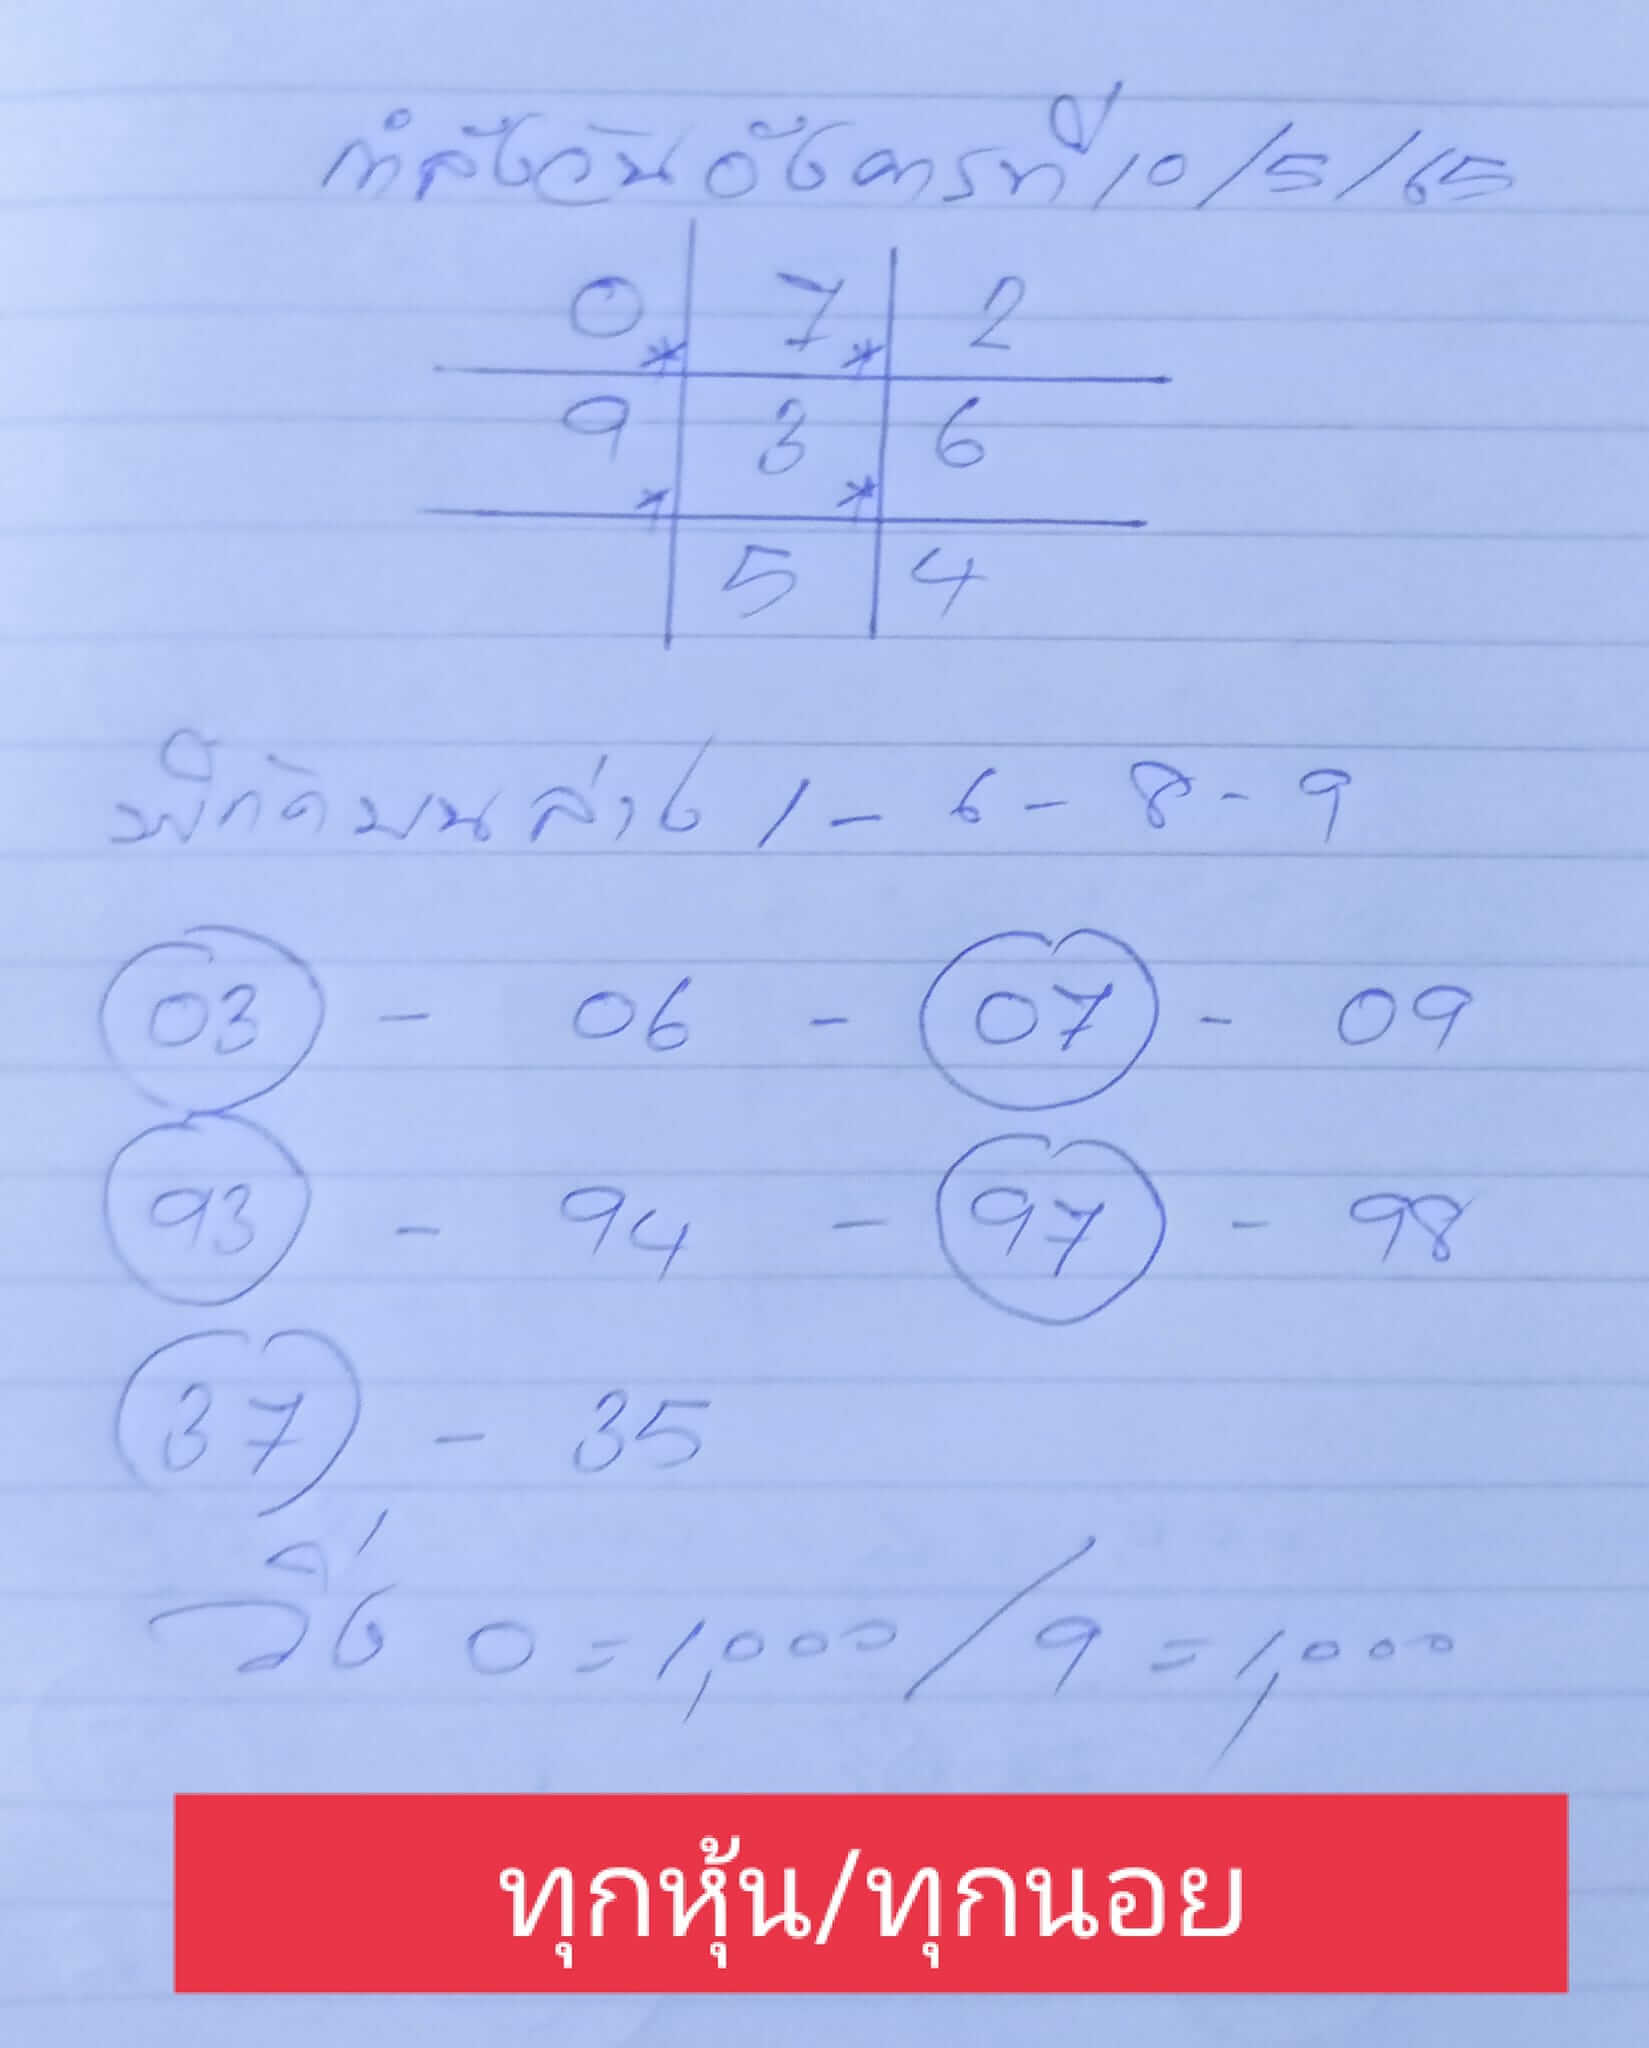 กำลังวันอังคารที่ 10/5/65
0 * 7 * 2
9 3 6
* *
5 4
พิกัดบนล่าง 1 - 6 - 8 - 9
03 - 06 - 07 - 09
93 - 94 - 97 - 98
37 - 35
วิ่ง 0 = 1,000 / 9 = 1,000
ทุกหุ้น/ทุกนอย